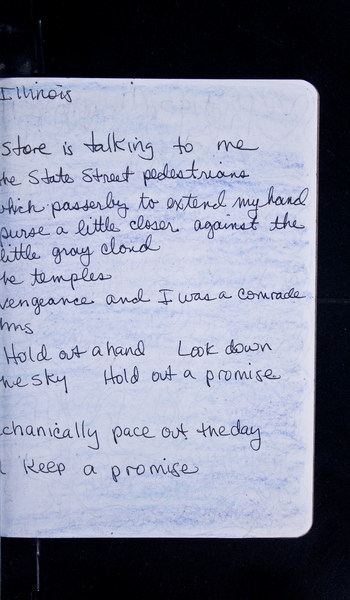 Illinois
Store is talking to me
he State Street pedestrians
which passerby to extend my hand
purse a little closer against the
little gray cloud
he temples
vengeance and I was a comrade
hms
Hold out a hand Look down
he sky Hold out a promise
chanically pace out the day
Keep a promise